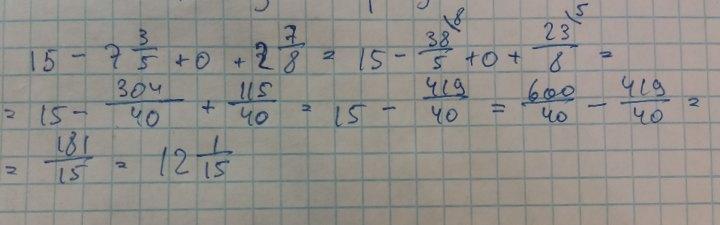 15 - 7 3/5 + 0 + 2 7/8 = 15 - 38/5 \8 + 0 + 23/8 \5 =
= 15 - 304/40 + 115/40 = 15 - 419/40 = 600/40 - 419/40 =
= 181/15 = 12 1/15